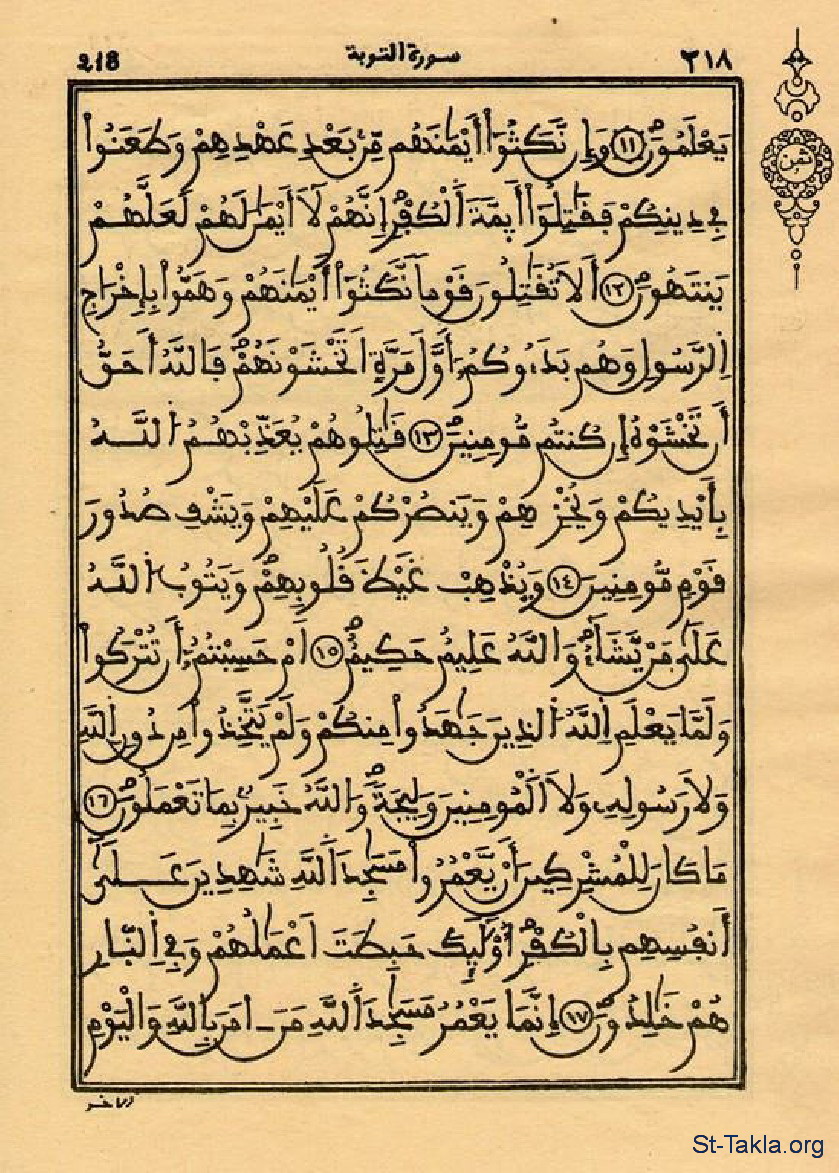 218 سورة التوبة ٢١٨
ثمن
يَعْلَمُونَ ١١ وَإِن نَّكَثُوٓا۟ أَيْمَٰنَهُم مِّنۢ بَعْدِ عَهْدِهِمْ وَطَعَنُوا۟
فِے دِينِكُمْ فَقَٰتِلُوٓا۟ أَيِمَّةَ اَ۬لْكُفْرِ إِنَّهُمْ لَآ أَيْمَٰنَ لَهُمْ لَعَلَّهُمْ
يَنتَهُونَ ١٢ أَلَا تُقَٰتِلُونَ قَوْماً نَّكَثُوٓا۟ أَيْمَٰنَهُمْ وَهَمُّوا۟ بِإِخْرَاجِ
اِ۬لرَّسُولِ وَهُم بَدَءُوكُمُۥٓ أَوَّلَ مَرَّةٍ اَتَخْشَوْنَهُمْ فَاللَّهُ أَحَقُّ
أَن تَخْشَوْهُ إِن كُنتُم مُّومِنِينَ ١٣ قَٰتِلُوهُمْ يُعَذِّبْهُمُ اُ۬للَّهُ
بِأَيْدِيكُمْ وَيُخْزِهِمْ وَيَنصُرْكُمْ عَلَيْهِمْ وَيَشْفِ صُدُورَ
قَوْمٍ مُّومِنِينَ ١٤ وَيُذْهِبْ غَيْظَ قُلُوبِهِمْ وَيَتُوبُ اُ۬للَّهُ
عَلَىٰ مَنْ يَّشَآءُ وَاللَّهُ عَلِيمٌ حَكِيمٌ ١٥ أَمْ حَسِبْتُمُۥٓ أَن تُتْرَكُوا۟
وَلَمَّا يَعْلَمِ اِ۬للَّهُ اُ۬لذِينَ جَٰهَدُوا۟ مِنكُمْ وَلَمْ يَتَّخِذُوا۟ مِن دُونِ اِ۬للَّهِ
وَلَا رَسُولِهِۦ وَلَا اَ۬لْمُومِنِينَ وَلِيجَةً وَاللَّهُ خَبِيرٌۢ بِمَا تَعْمَلُونَ ١٦
مَا كَانَ لِلْمُشْرِكِينَ أَنْ يَّعْمُرُوا۟ مَسَٰجِدَ اَ۬للَّهِ شَٰهِدِينَ عَلَىٰٓ
أَنفُسِهِم بِالْكُفْرِ أُو۟لَٰٓئِكَ حَبِطَتَ اَعْمَٰلُهُمْ وَفِے اِ۬لنَّارِ
هُمْ خَٰلِدُونَ ١٧ إِنَّمَا يَعْمُرُ مَسَٰجِدَ اَ۬للَّهِ مَنَ اٰمَنَ بِاللَّهِ وَالْيَوْمِ
اِ۬لَاخِرِ
St-Takla.org